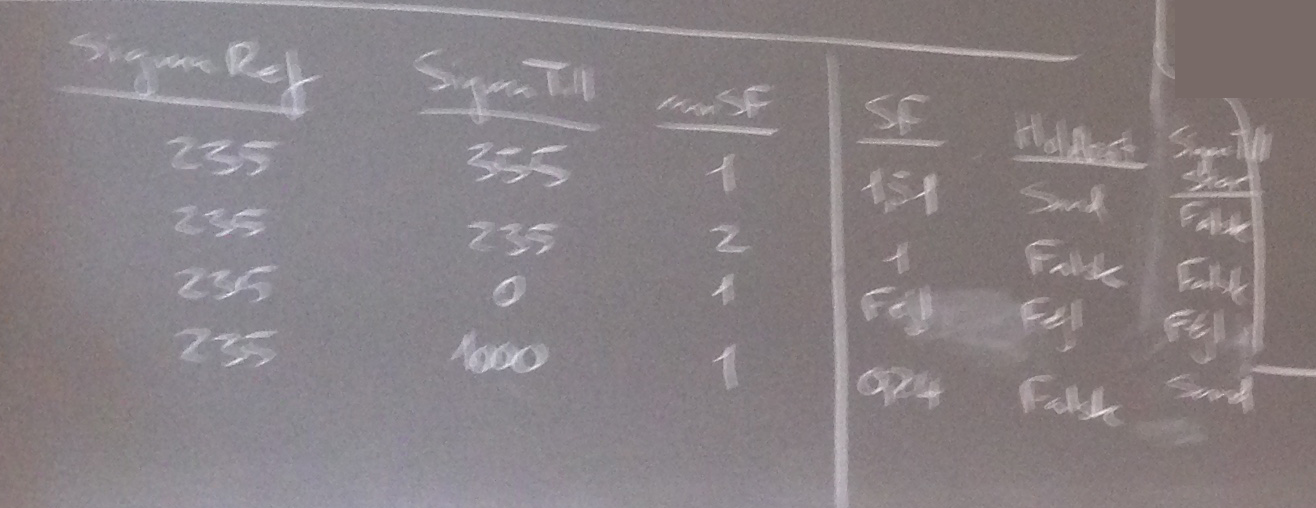 SigmaRef SigmaTill minSF SF Holdbart SigmaTill
stor
235 355 1 1,51 Sand Falsk
235 235 2 1 Falsk Falsk
235 0 1 Fejl Fejl Fejl
235 1000 1 0,24 Falsk Sand